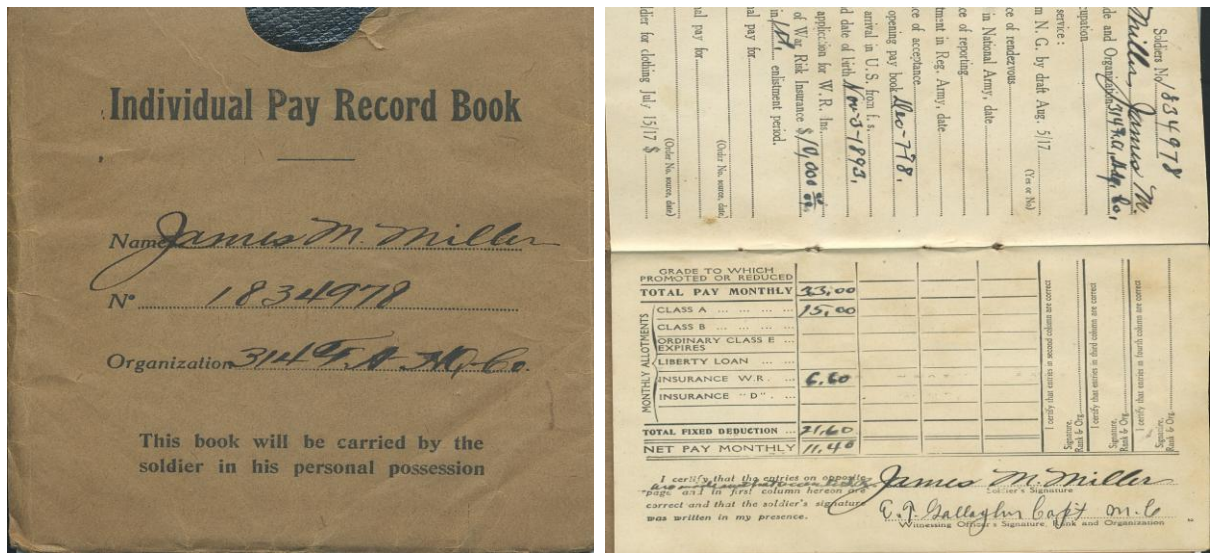 Individual Pay Record Book
Name James M. Miller
No 1834978
Organization 314 F.A. HQ. Co.
This book will be carried by the
soldier in his personal possession
Soldiers No. 1834978
Miller, James M.
de and Organization 314 F.A. Hdq. Co.
cupation
service:
m N. G. by draft Aug. 5/17
(Yes or No)
ce of rendezvous
in National Army, date
ce of reporting
tment in Reg. Army, date
ce of acceptance
opening pay book Dec-7-18.
arrival in U.S. from f. s.
d date of birth Nov-3-1893.
application for W. R. Ins.
of War Risk Insurance $10,000 00
in 1st. enlistment period.
nal pay for
(Order No. source, date)
nal pay for
(Order No. source, date)
ldier for clothing July 15/17 $
GRADE TO WHICH
PROMOTED OR REDUCED
TOTAL PAY MONTHLY 33,00
MONTHLY ALLOTMENTS
CLASS A 15,00
CLASS B
ORDINARY CLASS E
EXPIRES
LIBERTY LOAN
INSURANCE W.R. 6.60
INSURANCE "D".
TOTAL FIXED DEDUCTION 21,60
NET PAY MONTHLY 11,40
I certify that entries in second column are correct
Signature,
Rank & Org.
I certify that entries in third column are correct
Signature,
Rank & Org.
I certify that entries in fourth column are correct
Signature,
Rank & Org.
I certify that the entries on opposite
page and in first column hereon are
correct and that the soldier's signature
was written in my presence.
James M. Miller
Soldier's Signature
E. T. Gallagher Capt M. C
Witnessing Officer's Signature, Rank and Organization